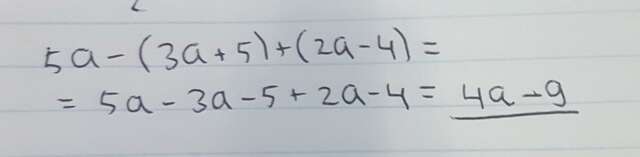 5a-(3a+5)+(2a-4)=
= 5a-3a-5+2a-4= 4a-9